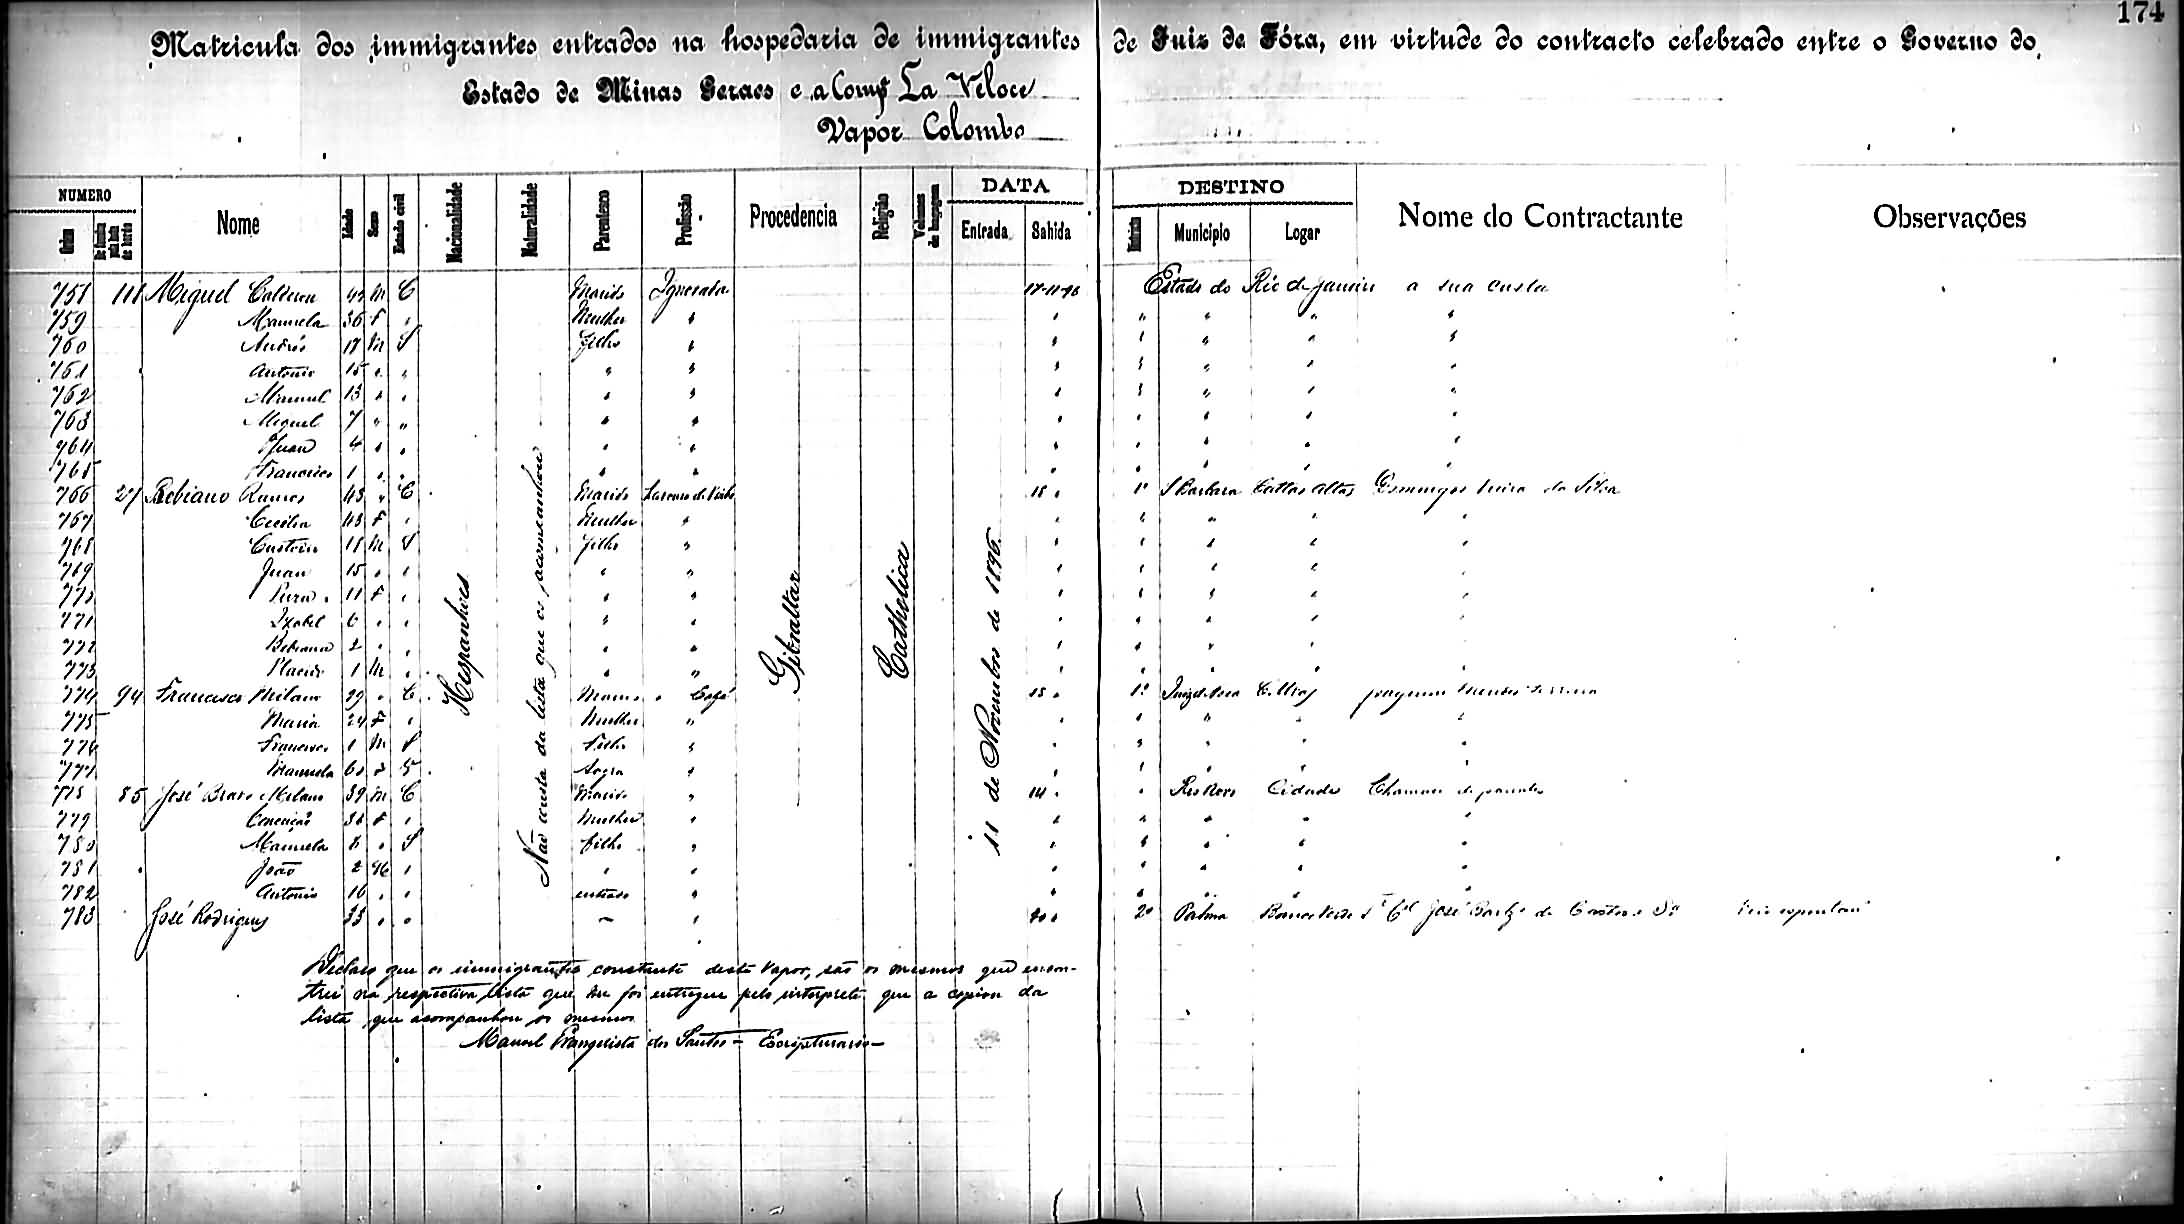 174
Matricula dos immigrantes entrados na hospedaria de immigrantes de Juiz de Fóra, em virtude do contracto celebrado entre o Governo do
Estado de Minas Geraes e a Comp La Veloce
Vapor Colombo
NUMERO Nome Idade Sexo Estado civil Nacionalidade Naturalidade Parentesco Profissão Procedencia Religião Volumes de bagagem DATA DESTINO Nome do Contractante Observações
Ordem Entrada Sahida Districto Municipio Logar
758 111 Miguel Calderon 42 M C Marido Ignorada 17-11-96 Estado do Rio de Janeiro a sua custa
759 Manuela 36 F " Mulher " " " " " "
760 Andrés 17 M S Filho " " " " " "
761 Antonio 15 " " " " " " " " "
762 Manuel 13 " " " " " " " " "
763 Miguel 7 " " " " " " " " "
764 Juan 4 " " " " " " " " "
765 Francisco 1 " " " " " " " " "
766 27 Bebiano Ramos 43 " C Marido 18 " 1º S Barbara Cattas Altas Domingos da Silva
767 Cecilia 43 F " Mulher " " " " " "
768 18 M S Filho " " " " " "
769 Juan 15 " " " " " " " " "
770 11 F " " " " " " " "
771 Izabel 6 " " " " " " " " "
772 Bebiana 2 " " " " " " " " "
773 Placido 1 M " " " " " " " "
774 94 Francisco Milano 29 " C Marido " Café 18 " 1º
775 Maria 24 F " Mulher " " " " " "
776 Francisco 1 M S Filho " " " " " "
777 Manuela 60 F Sogra " " " " " "
778 85 José Bravo Milano 39 M C Marido " 14 " " Rio Novo Cidade Chamado de parentes
779 Conceição F " Mulher " " " " " "
780 Manuela 8 " S Filho " " " " " "
781 João 2 M " " " " " " " "
782 Antonio 16 " " " " " " " "
783 José Rodrigues 33 " " — " 20 " 2º Palma José de Castro
Hespanhoes
Não consta da lista que os acompanhou
Gibraltar
Catholica
11 de Novembro de 1896.
Declaro que os immigrantes constante deste Vapor, são os mesmos que encon-
trei na respectiva lista que me foi entregue pelo interprete que a copiou da
lista que acompanhou os mesmos
Manoel Evangelista dos Santos - Escripturario-